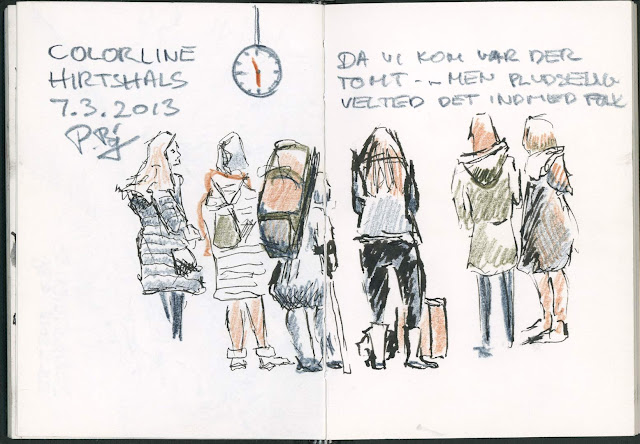 COLORLINE
HIRTSHALS
7.3.2013
DA VI KOM VAR DER
TOMT - - MEN PLUDSELIG
VELTED DET IND MED FOLK